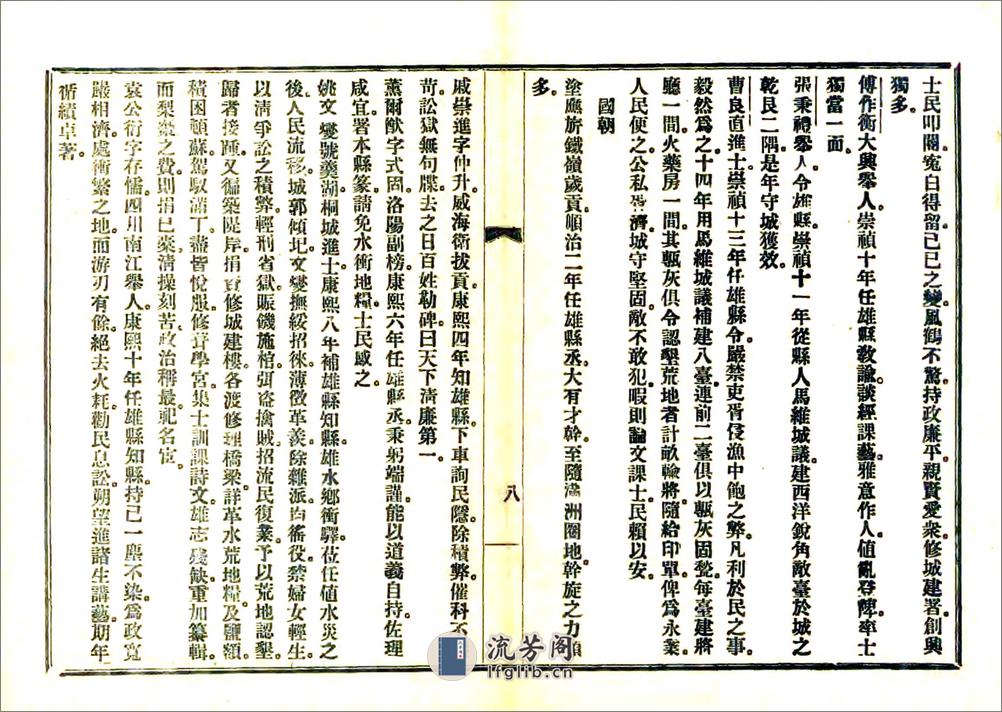 士民叩閽冤白得留己巳之變風鶴不驚持政廉平親賢愛衆修城建署創興
獨多
傅作衡大興舉人崇禎十年任雄縣教諭談經課藝雅意作人值亂登陴率士
獨當一面
張秉禮舉人令雄縣崇禎十一年從縣人馬維城議建西洋銳角敵臺於城之
乾艮二隅是年守城獲效
曹良直進士崇禎十三年任雄縣令嚴禁吏胥侵漁中飽之弊凡利於民之事
毅然爲之十四年用馬維城議補建八臺連前二臺俱以甎灰固甃每臺建將
廳一間火藥房一間其甎灰俱令認墾荒地者計畝輸將隨給印單俾爲永業
人民便之公私胥濟城守堅固敵不敢犯暇則論文課士民賴以安
國朝
塗應旂鐵嶺歲貢順治二年任雄縣丞大有才幹至隨滿洲圈地幹旋之力頗
多
八
戚崇進字仲升威海衛拔貢康熙四年知雄縣下車詢民隱除積弊催科不
苛訟獄無句牒去之日百姓勒碑曰天下淸廉第一
薰爾猷字式固洛陽副榜康熙六年任雄縣丞秉躬端謹能以道義自持佐理
咸宜署本縣篆請免水衝地糧士民感之
姚文燮號羹湖桐城進士康熙八年補雄縣知縣雄水鄉衝驛莅任値水災之
後人民流移城郭傾圮文燮撫綏招徠薄徵革羨除雜派均徭役禁婦女輕生
以淸爭訟之積弊輕刑省獄賑饑施棺弭盗擒賊招流民復業予以荒地認墾
歸者接踵又徧築隄岸捐貲修城建樓各渡修理橋梁詳革水荒地糧及鹽額
積困頓蘇駕馭滿丁盡皆悅服修葺學宮集士訓課詩文雄志殘缺重加纂輯
而梨棗之費則捐己槖淸操刻苦政治稱最祀名宦
袁公衍字存儒四川南江舉人康熙十年任雄縣知縣持己一塵不染爲政寬
嚴相濟處衝繁之地而游刃有餘絕去火耗勸民息訟朔望進諸生講藝期年
循績卓著
流芳阁
lfglib.cn